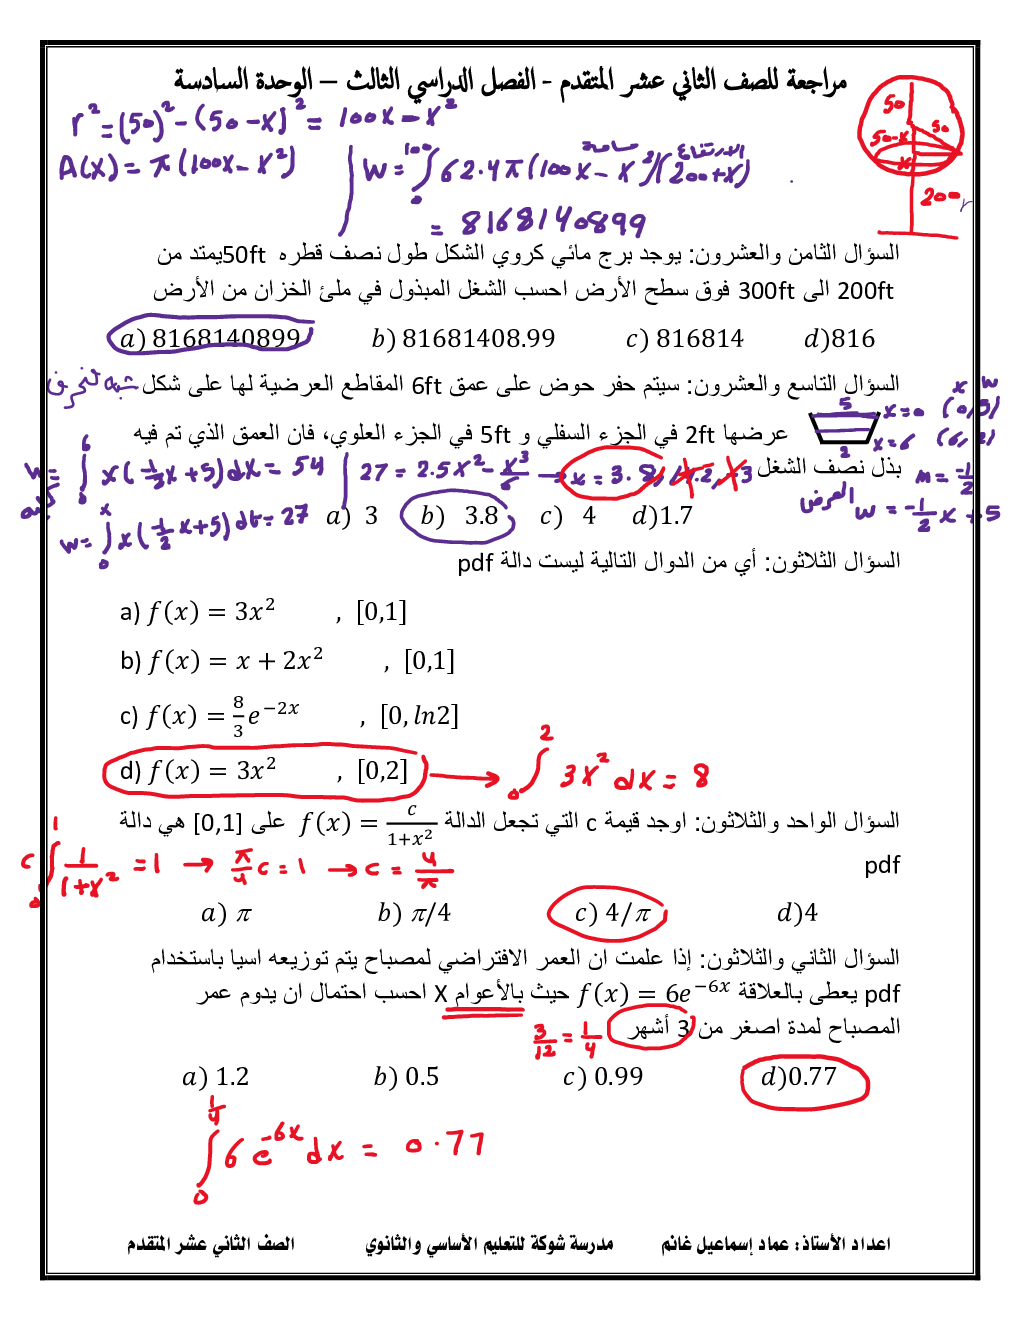 مراجعة للصف الثاني عشر المتقدم - الفصل الدراسي الثالث – الوحدة السادسة
r² = (50)² - (50-x)² = 100x - x²
A(x) = π(100x - x²)
W = ∫₀¹⁰⁰ 62.4π(100x - x²)(200+x)
مساحة الارتفاع
= 8168140899
50
50
50-x
x
200
السؤال الثامن والعشرون: يوجد برج مائي كروي الشكل طول نصف قطره 50ft يمتد من
200ft الى 300ft فوق سطح الأرض احسب الشغل المبذول في ملئ الخزان من الأرض
a) 8168140899 b) 81681408.99 c) 816814 d)816
السؤال التاسع والعشرون: سيتم حفر حوض على عمق 6ft المقاطع العرضية لها على شكل شبه المنحرف
عرضها 2ft في الجزء السفلي و 5ft في الجزء العلوي، فان العمق الذي تم فيه
بذل نصف الشغل
5
2
x w
x=0 (0,5)
x=6 (6,2)
m = -1/2
العرض w = -1/2 x + 5
W = ∫₀⁶ x(-1/2 x + 5)dx = 54
27 = 2.5x² - x³/6 → x = 3.8
W = ∫₀ˣ x(-1/2 x + 5) dt = 27
a) 3 b) 3.8 c) 4 d)1.7
السؤال الثلاثون: أي من الدوال التالية ليست دالة pdf
a) f(x) = 3x² , [0,1]
b) f(x) = x + 2x² , [0,1]
c) f(x) = 8/3 e⁻²ˣ , [0, ln2]
d) f(x) = 3x² , [0,2] → ∫₀² 3x² dx = 8
السؤال الواحد والثلاثون: اوجد قيمة c التي تجعل الدالة f(x) = c/(1+x²) على [0,1] هي دالة
pdf
c ∫₀¹ 1/(1+x²) = 1 → π/4 c = 1 → c = 4/π
a) π b) π/4 c) 4/π d)4
السؤال الثاني والثلاثون: إذا علمت ان العمر الافتراضي لمصباح يتم توزيعه اسيا باستخدام
pdf يعطى بالعلاقة f(x) = 6e⁻⁶ˣ حيث بالأعوام X احسب احتمال ان يدوم عمر
المصباح لمدة اصغر من 3 أشهر
3/12 = 1/4
a) 1.2 b) 0.5 c) 0.99 d)0.77
∫₀^(1/4) 6e⁻⁶ˣ dx = 0.77
اعداد الأستاذ: عماد إسماعيل غانم مدرسة شوكة للتعليم الأساسي والثانوي الصف الثاني عشر المتقدم